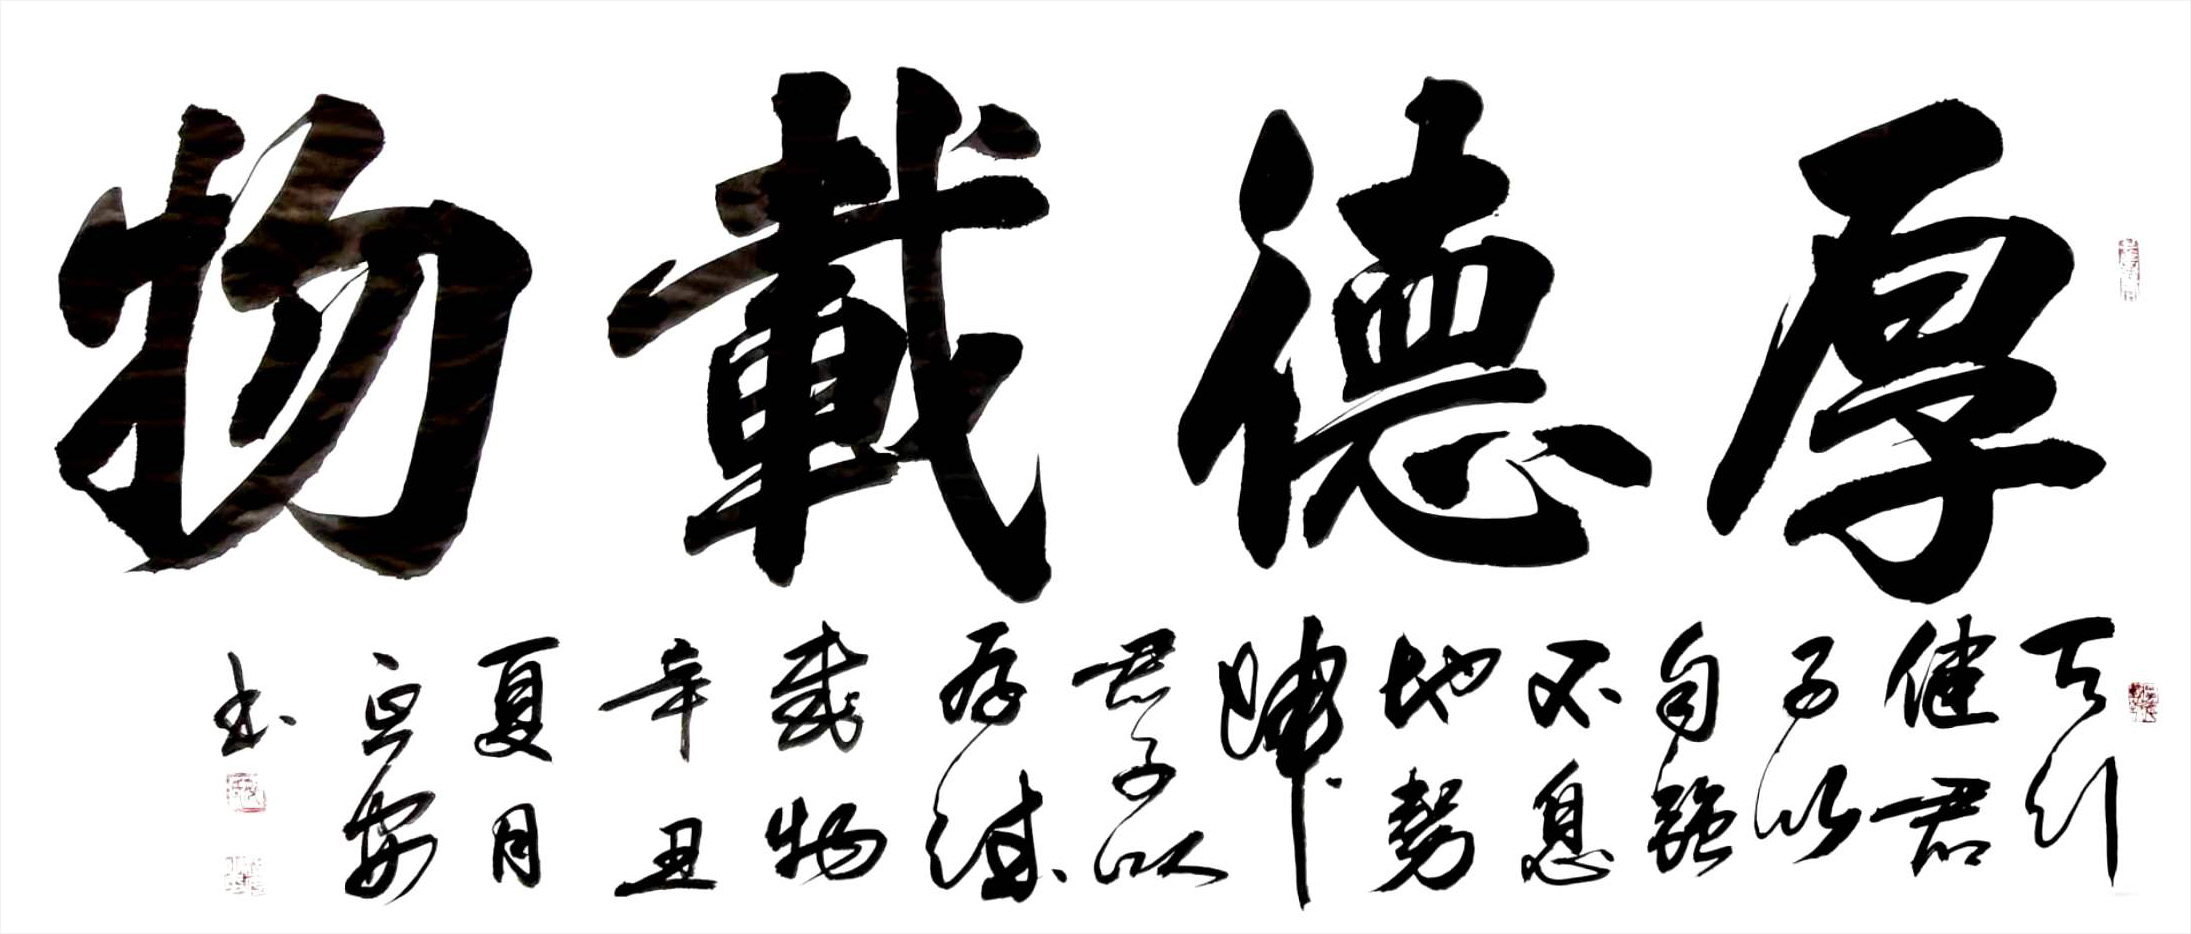 厚德載物
天行
健君
子以
自强
不息
地勢
坤
君子以
厚德
載物
辛丑
夏月
正安
书